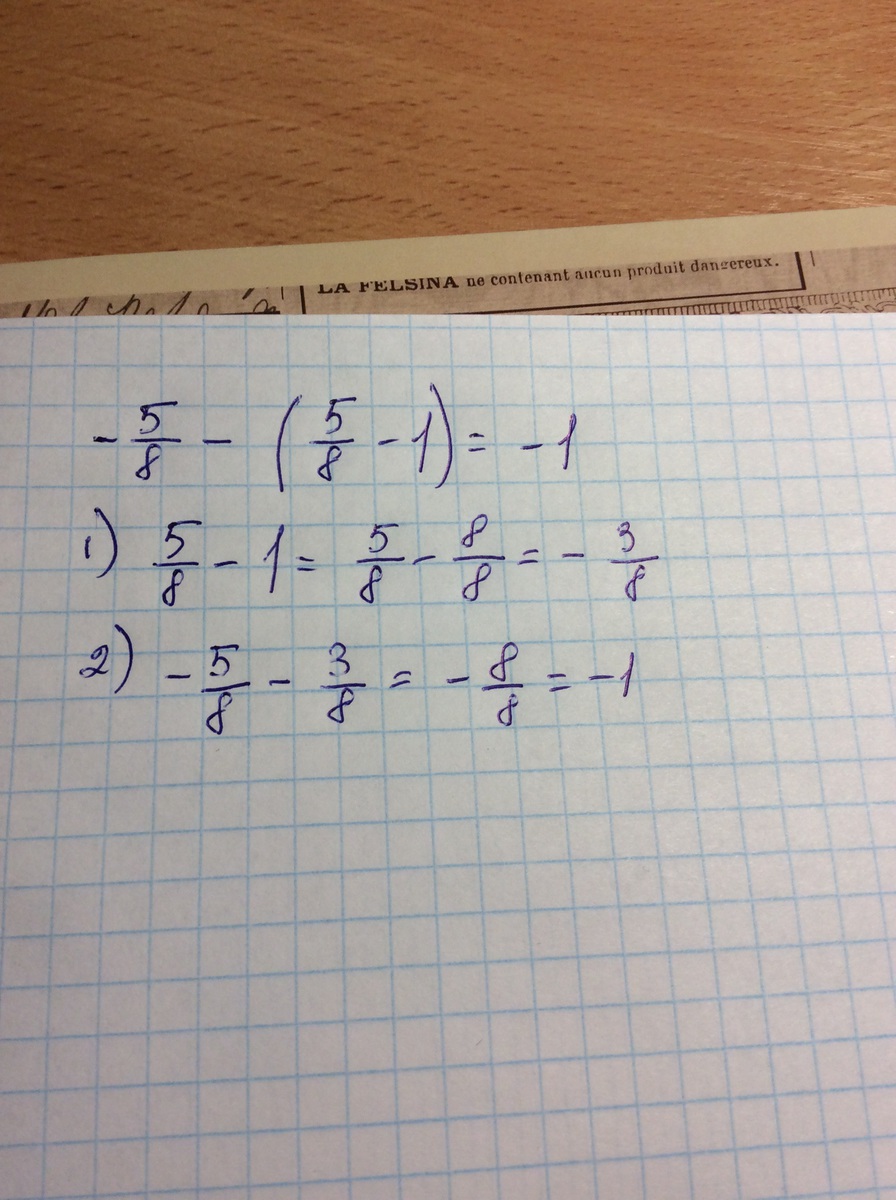 LA FELSINA ne contenant aucun produit dangereux.
- 5/8 - (5/8 - 1) = -1
1) 5/8 - 1 = 5/8 - 8/8 = - 3/8
2) - 5/8 - 3/8 = - 8/8 = -1